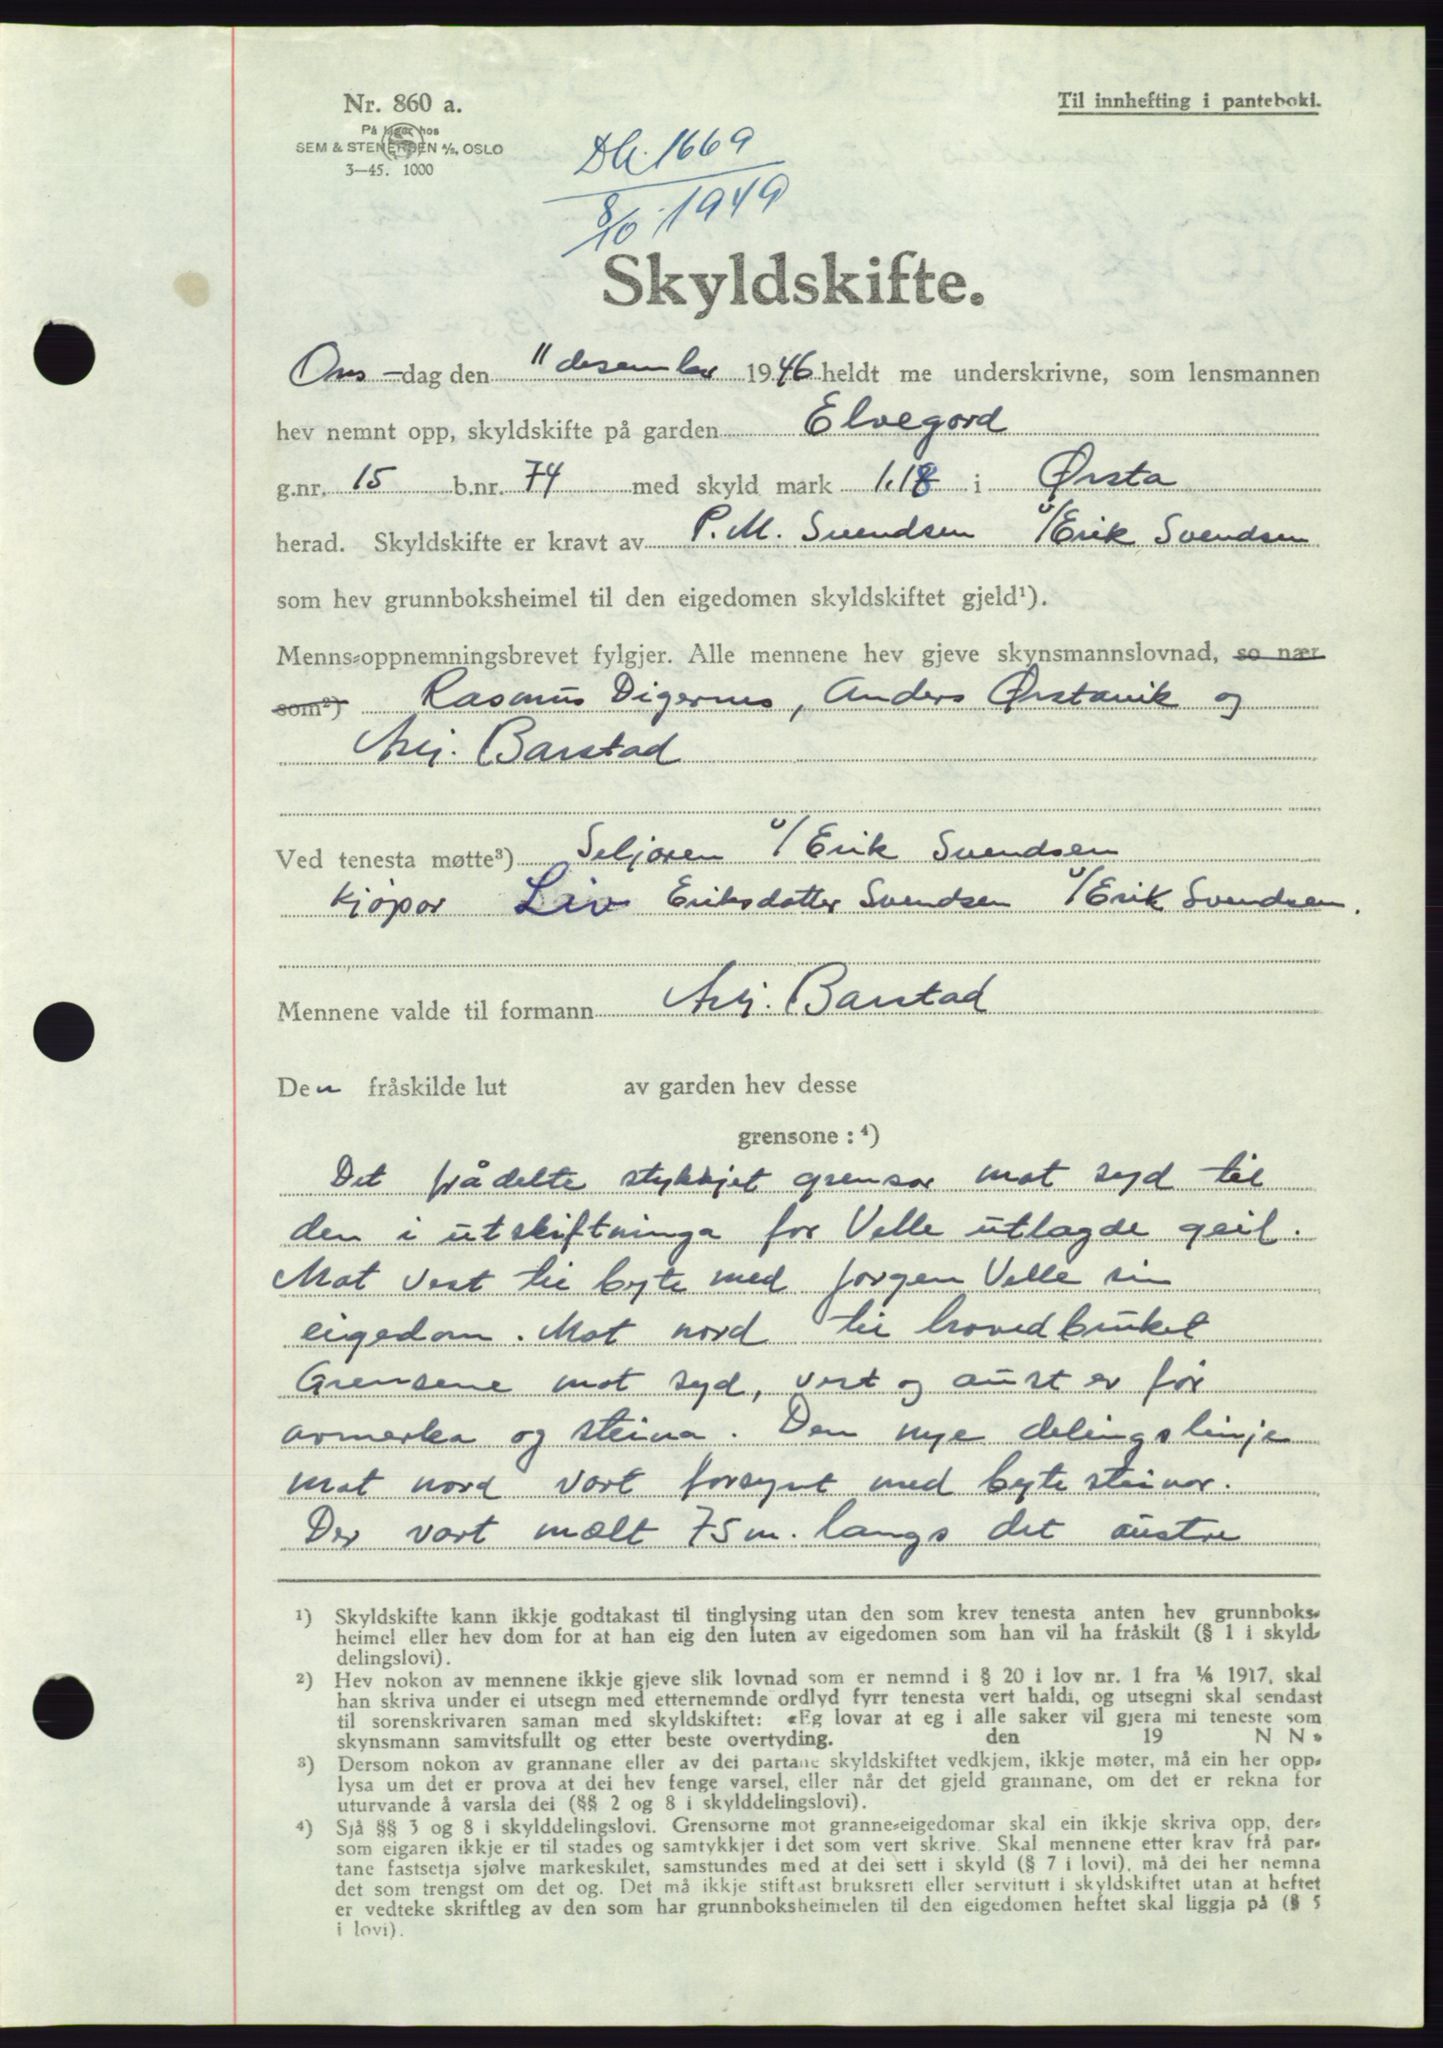 Nr. 860 a.
Til innhefting i panteboki.
På lager hos
SEM & STENERSEN A/S, OSLO
3—45. 1000
Db. 1669
8/10 1949
Skyldskifte.
Ons-dag den 11 desember 1946 heldt me underskrivne, som lensmannen
hev nemnt opp, skyldskifte på garden Elvegord
g.nr. 15 b.nr. 74 med skyld mark 1.18 i Ørsta
herad. Skyldskifte er kravt av P. M. Svendsen v/Erik Svendsen
som hev grunnboksheimel til den eigedomen skyldskiftet gjeld¹).
Menns-oppnemningsbrevet fylgjer. Alle mennene hev gjeve skynsmannslovnad, so nær
som²) Rasmus Digernes, Anders Ørstavik og
Asbj. Barstad
Ved tenesta møtte³) Seljaren v/Erik Svendsen
kjøpar Liv Eriksdotter Svendsen v/Erik Svendsen.
Mennene valde til formann Asbj. Barstad
Den fråskilde lut av garden hev desse
grensone : ⁴)
Det frådelte stykkjet grensar mot syd til
den i utskiftninga for Velle utlagde geil.
Mot vest til byte med Jørgen Velle sin
eigedom. Mot nord til hovedbruket
Grensene mot syd, vest og aust er før
avmerka og steina. Den nye delingslinje
mot nord vart forsynt med bytesteinar.
Der vart mælt 75 m. langs det austre
¹) Skyldskifte kann ikkje godtakast til tinglysing utan den som krev tenesta anten hev grunnboks-
heimel eller hev dom for at han eig den luten av eigedomen som han vil ha fråskilt (§ 1 i skyld-
delingslovi).
²) Hev nokon av mennene ikkje gjeve slik lovnad som er nemnd i § 20 i lov nr. 1 fra 1/6 1917, skal
han skriva under ei utsegn med etternemnde ordlyd fyrr tenesta vert haldi, og utsegni skal sendast
til sorenskrivaren saman med skyldskiftet: «Eg lovar at eg i alle saker vil gjera mi teneste som
skynsmann samvitsfullt og etter beste overtyding. den 19 N N»
³) Dersom nokon av grannane eller av dei partane skyldskiftet vedkjem, ikkje møter, må ein her opp-
lysa um det er prova at dei hev fenge varsel, eller når det gjeld grannane, om det er rekna for
uturvande å varsla dei (§§ 2 og 8 i skylddelingslovi).
⁴) Sjå §§ 3 og 8 i skylddelingslovi. Grensorne mot granne-eigedomar skal ein ikkje skriva opp, der-
som eigaren ikkje er til stades og samtykkjer i det som vert skrive. Skal mennene etter krav frå par-
tane fastsetja sjølve markeskilet, samstundes med at dei sett i skyld (§ 7 i lovi), må dei her nemna
det som trengst om det og. Det må ikkje stiftast bruksrett eller servitutt i skyldskiftet utan at heftet
er vedteke skriftleg av den som har grunnboksheimelen til den eigedomen heftet skal liggja på (§ 5
i lovi).